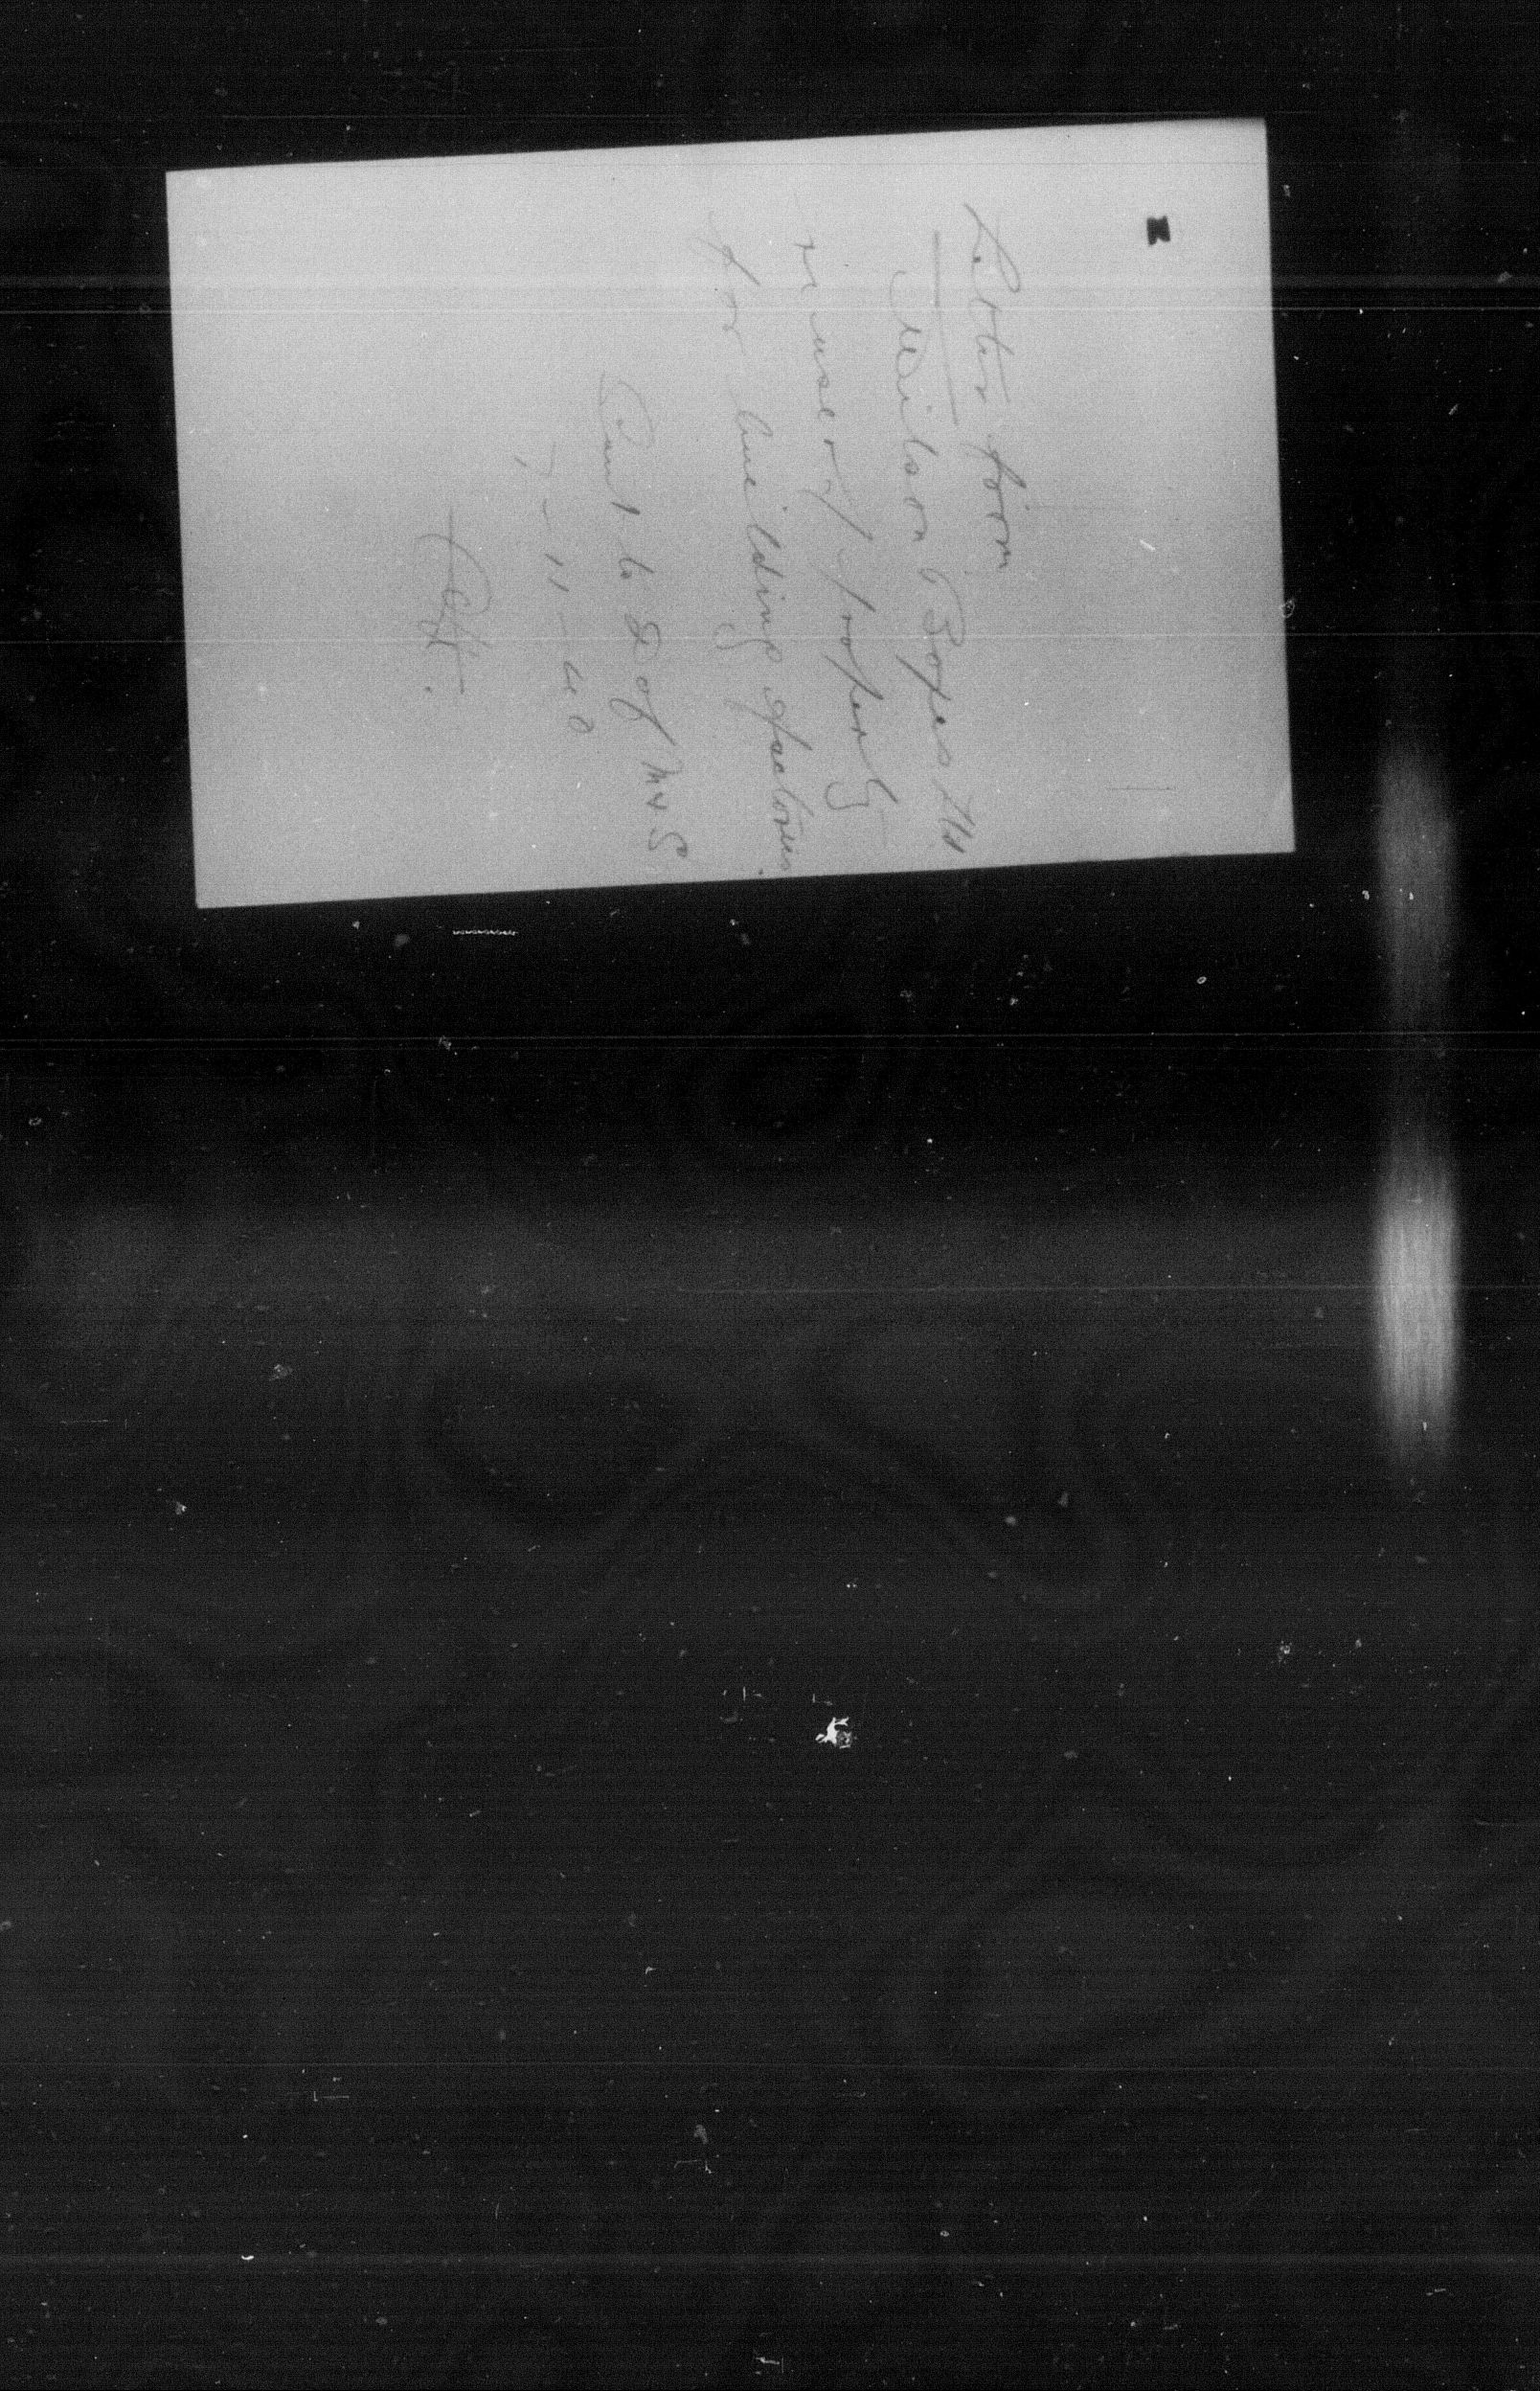 Letter from
Wilson Boxes Ltd
re use of property
for building factories.
Sent to D of M & S
7-11-40